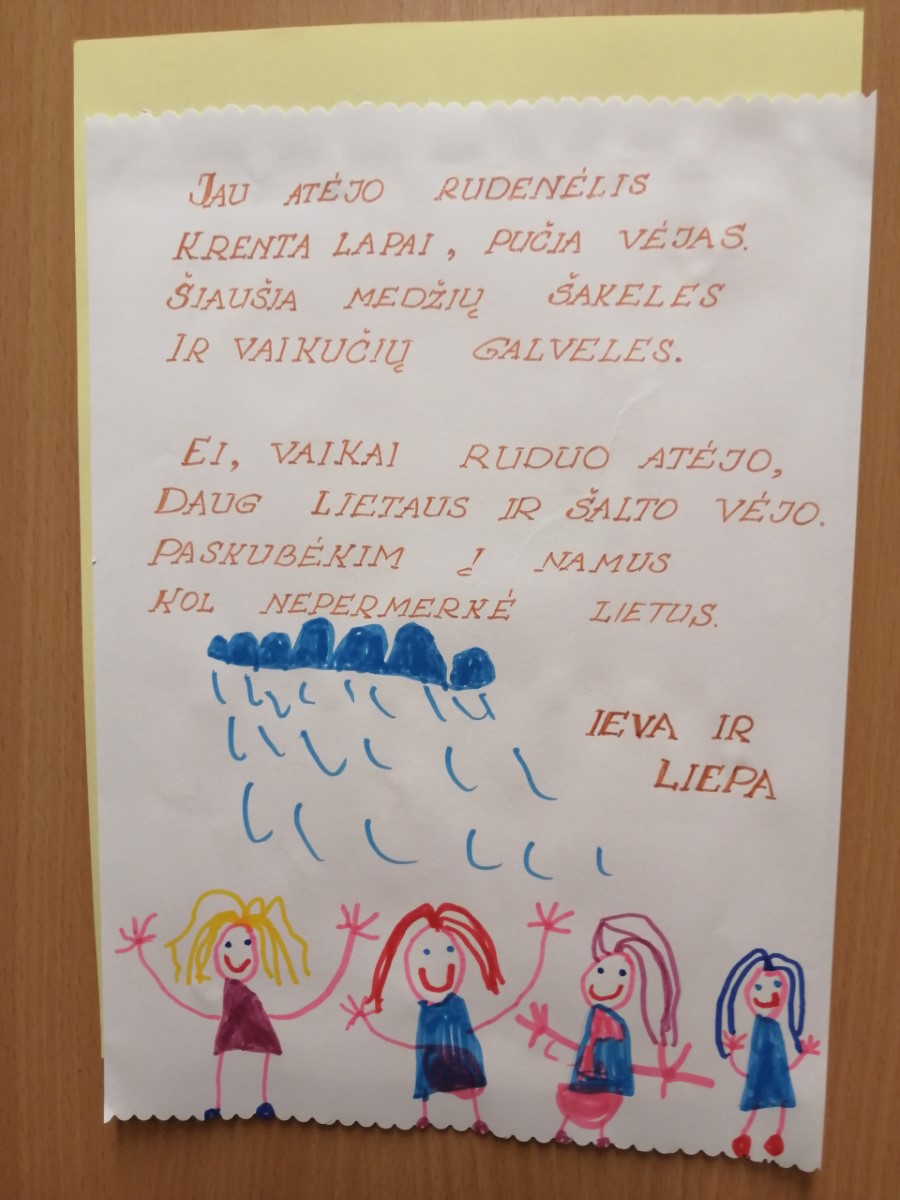 JAU ATĖJO RUDENĖLIS
KRENTA LAPAI, PUČIA VĖJAS.
ŠIAUŠIA MEDŽIŲ ŠAKELES
IR VAIKUČIŲ GALVELES.
EI, VAIKAI RUDUO ATĖJO,
DAUG LIETAUS IR ŠALTO VĖJO.
PASKUBĖKIM Į NAMUS
KOL NEPERMERKĖ LIETUS.
IEVA IR
LIEPA